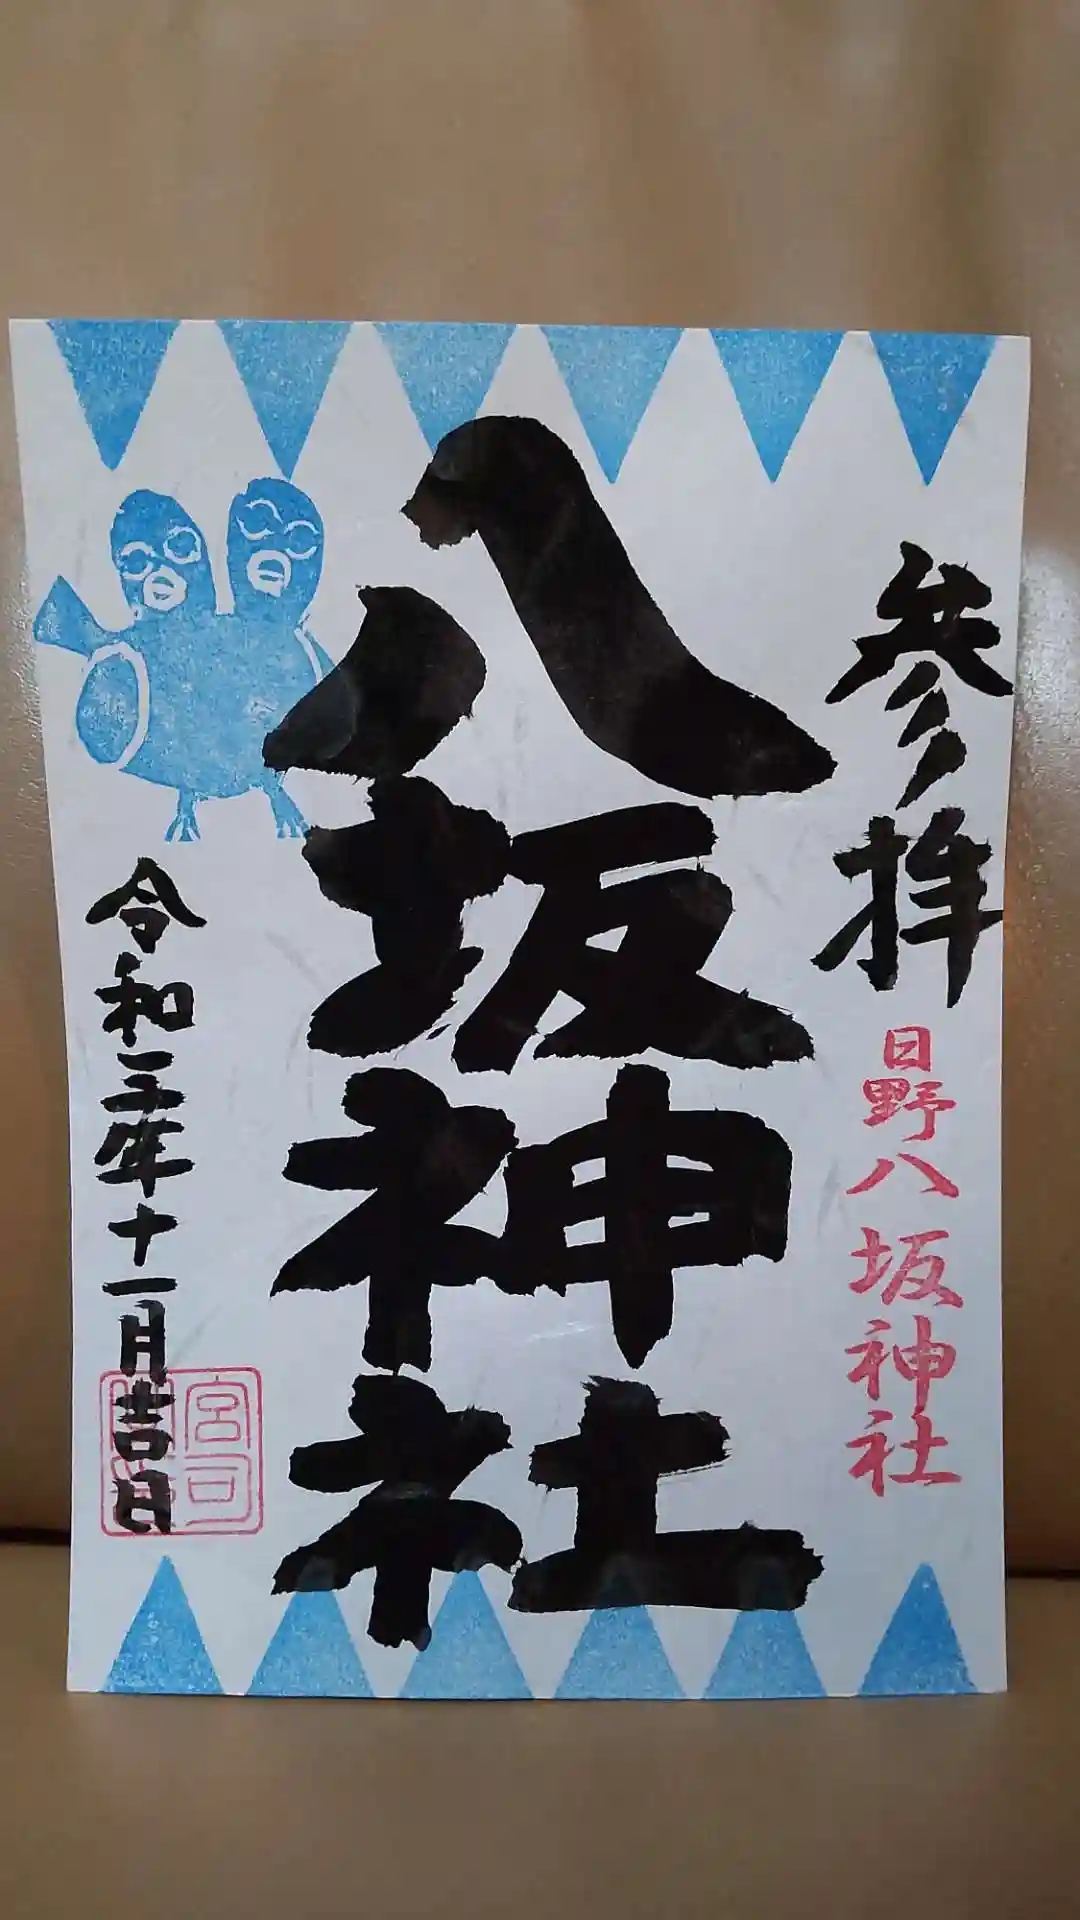 参拝
日野八坂神社
八坂神社
令和三年十一月吉日
宮司